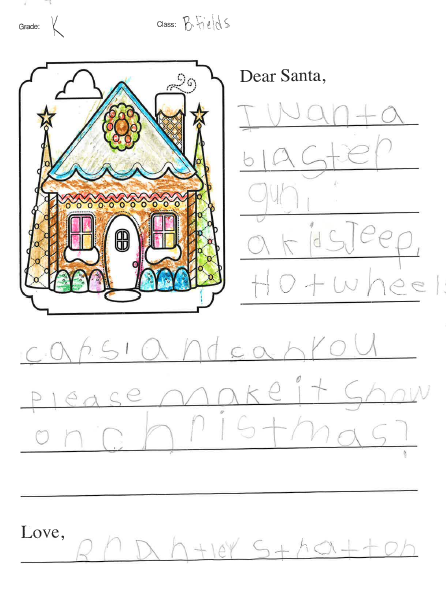 Grade: K Class: B. fields
Dear Santa,
I Wanta
blaster
gun,
a kidsJeep,
Hotwheels
cars, and can you
please make it Snow
on christmas?
Love,
Brantley Stratton